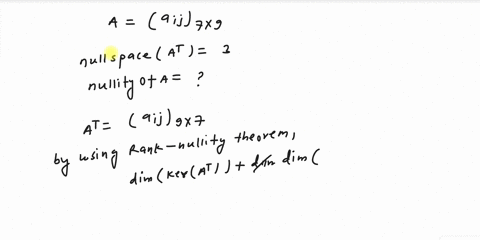 A = (aij)7x9
nullspace(AT) = 3
nullity of A = ?
AT = (aij)9x7
by using Rank-nullity theorem,
dim(Ker(AT)) + dim dim(